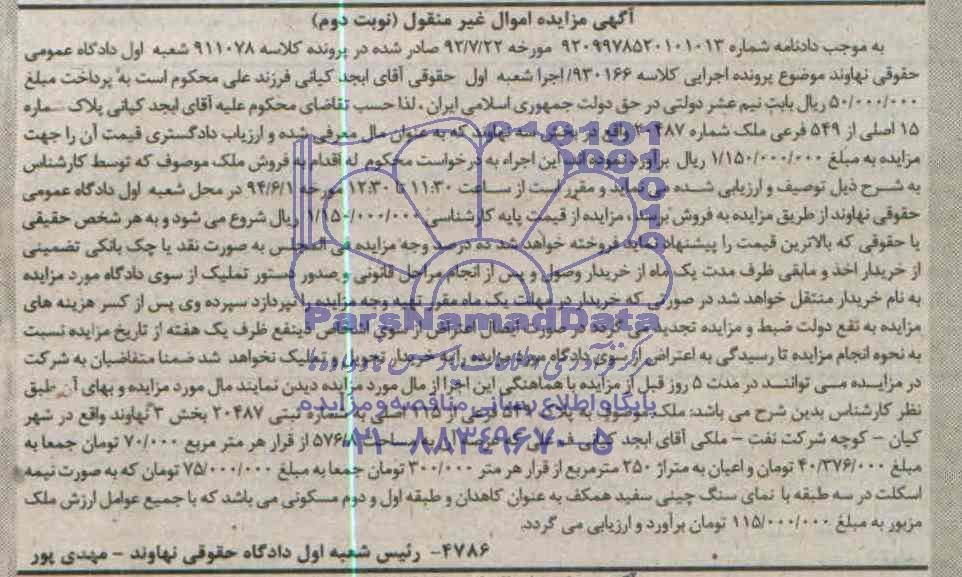 آگهی مزایده اموال غیر منقول (نوبت دوم)
به موجب دادنامه شماره ۹۲۰۹۹۷۸۵۲۰۱۰۱۰۱۳ مورخه ۹۲/۷/۲۲ صادر شده در پرونده کلاسه ۹۱۱۰۷۸ شعبه اول دادگاه عمومی
حقوقی نهاوند موضوع پرونده اجرایی کلاسه ۹۳۰۱۶۶/ اجرا شعبه اول حقوقی آقای ابجد کیانی فرزند علی محکوم است به پرداخت مبلغ
۵۰/۰۰۰/۰۰۰ ریال بابت نیم عشر دولتی در حق دولت جمهوری اسلامی ایران ، لذا حسب تقاضای محکوم علیه آقای ابجد کیانی پلاک شماره
۱۵ اصلی از ۵۴۹ فرعی ملک شماره ۲۰۴۸۷ واقع در بخش سه نهاوند که به عنوان مال معرفی شده و ارزیاب دادگستری قیمت آن را جهت
مزایده به مبلغ ۱/۱۵۰/۰۰۰/۰۰۰ ریال برآورد نموده اند این اجراء به درخواست محکوم له اقدام به فروش ملک موصوف که توسط کارشناس
به شرح ذیل توصیف و ارزیابی شده می نماید و مقرر است از ساعت ۱۱:۳۰ تا ۱۲:۳۰ مورخه ۹۴/۶/۱ در محل شعبه اول دادگاه عمومی
حقوقی نهاوند از طریق مزایده به فروش برسد، مزایده از قیمت پایه کارشناسی ۱/۱۵۰/۰۰۰/۰۰۰ ریال شروع می شود و به هر شخص حقیقی
یا حقوقی که بالاترین قیمت را پیشنهاد نماید فروخته خواهد شد ده درصد وجه مزایده فی المجلس به صورت نقد یا چک بانکی تضمینی
از خریدار اخذ و مابقی ظرف مدت یک ماه از خریدار وصول و پس از انجام مراحل قانونی و صدور دستور تملیک از سوی دادگاه مورد مزایده
به نام خریدار منتقل خواهد شد در صورتی که خریدار در مهلت یک ماه مقرر بقیه وجه مزایده را نپردازد سپرده وی پس از کسر هزینه های
مزایده به نفع دولت ضبط و مزایده تجدید می گردد در صورت اعتراض از سوی اشخاص ذینفع ظرف یک هفته از تاریخ مزایده نسبت
به نحوه انجام مزایده تا رسیدگی به اعتراض از سوی دادگاه مورد مزایده را به خریدار تحویل و تملیک نخواهد شد ضمنا متقاضیان به شرکت
در مزایده می توانند در مدت ۵ روز قبل از مزایده با هماهنگی این اجرا از مال مورد مزایده دیدن نمایند مال مورد مزایده و بهای آن طبق
نظر کارشناس بدین شرح می باشد: ملک موصوف به پلاک ۵۴۹ فرعی از ۱۵ اصلی به شماره ثبتی ۲۰۴۸۷ بخش ۳ نهاوند واقع در شهر
کیان – کوچه شرکت نفت – ملکی آقای ابجد کیانی ف علی که عرصه آن به مساحت ۵۷۶/۸ از قرار هر متر مربع ۷۰/۰۰۰ تومان جمعا به
مبلغ ۴۰/۳۷۶/۰۰۰ تومان و اعیان به متراژ ۲۵۰ مترمربع از قرار هر متر ۳۰۰/۰۰۰ تومان جمعا به مبلغ ۷۵/۰۰۰/۰۰۰ تومان که به صورت نیمه
اسکلت در سه طبقه با نمای سنگ چینی سفید همکف به عنوان کاهدان و طبقه اول و دوم مسکونی می باشد که با جمیع عوامل ارزش ملک
مزبور به مبلغ ۱۱۵/۰۰۰/۰۰۰ تومان برآورد و ارزیابی می گردد.
۴۷۸۶- رئیس شعبه اول دادگاه حقوقی نهاوند – مهدی پور
ParsNamadData
پایگاه اطلاع رسانی مناقصه و مزایده
۰۲۱-۸۸۳۴۹۶۷۰-۵